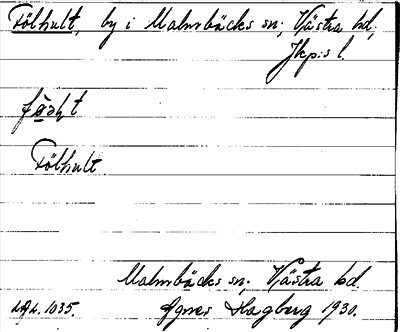 Fölhult, by i Malmbäcks sn; Västra hd,
Jkp:s l.
Fölhult
Malmbäcks sn; Västra hd.
1035. Agnes Hagberg 1930.